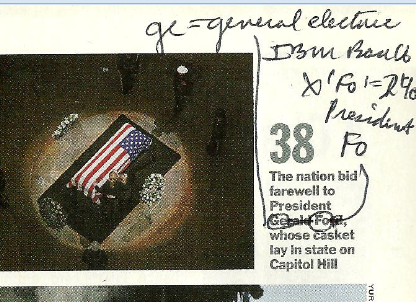 gc=general electric
IBM
X'Fo'=
President
Fo
38
The nation bid
farewell to
President
Gerald Ford,
whose casket
lay in state on
Capitol Hill
YUR